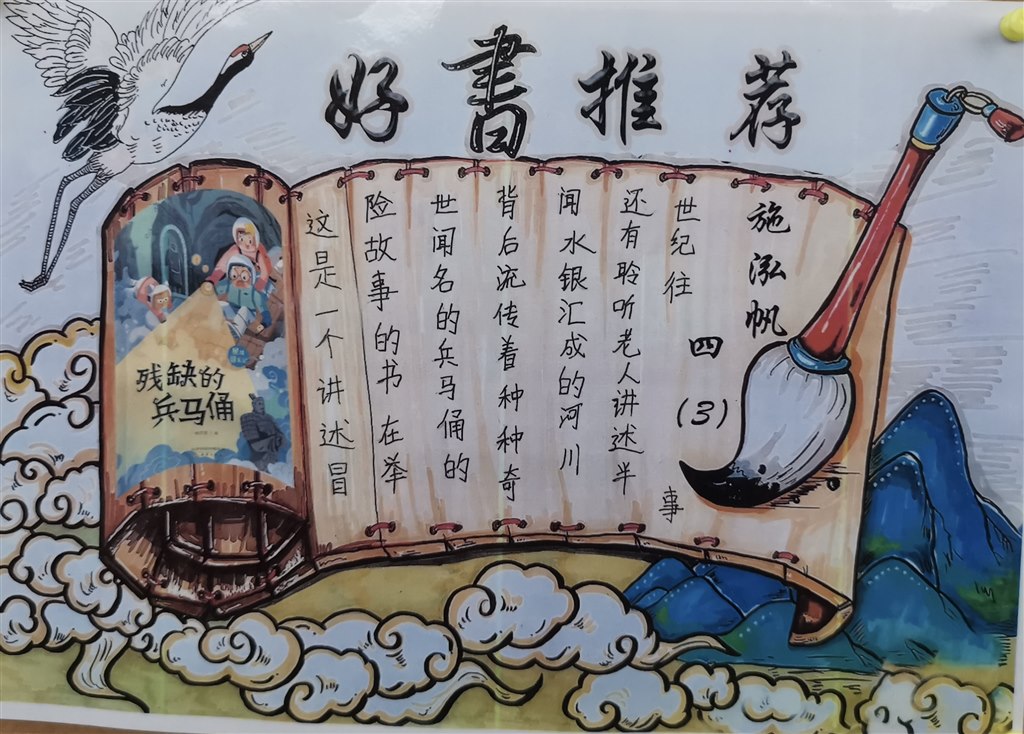 好書推荐
残缺的
兵马俑
这是一个讲述冒
险故事的书在举
世闻名的兵马俑的
背后流传着种种奇
闻水银汇成的河川
还有聆听老人讲述半
世纪往事
施泓帆
四(3)